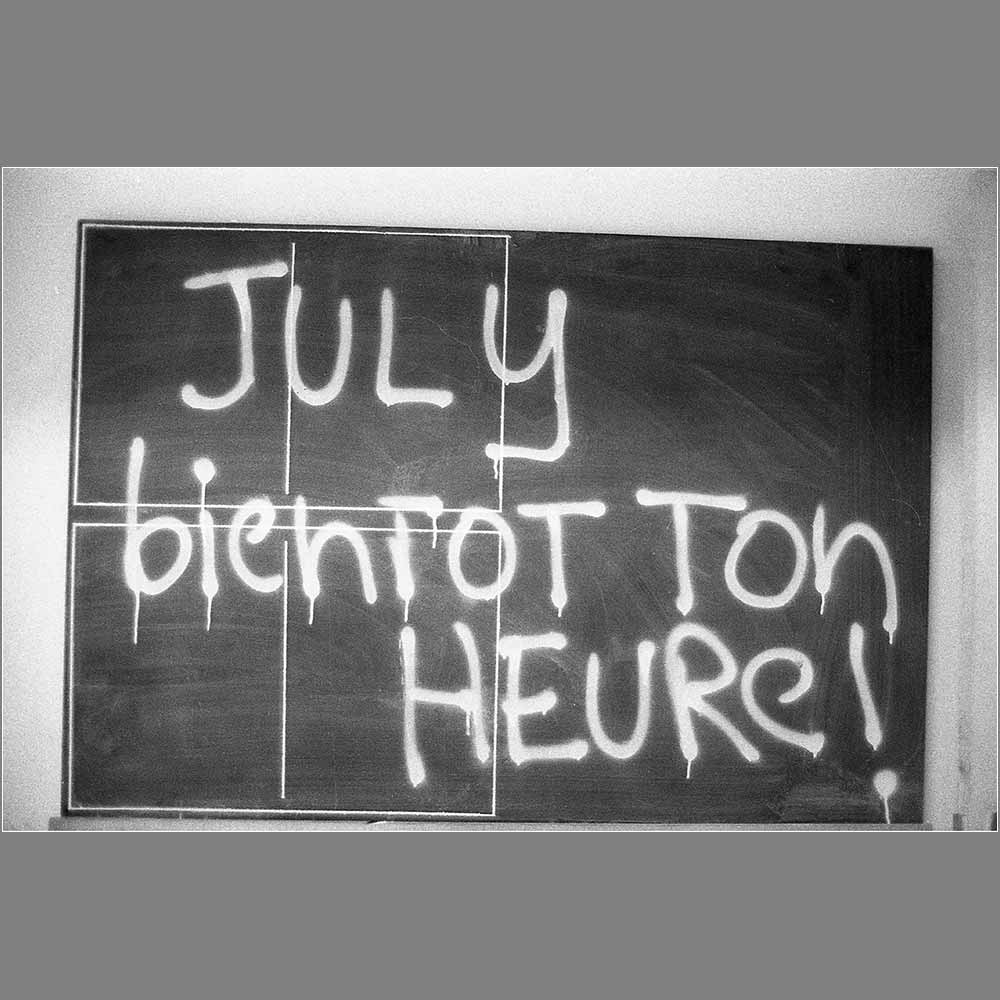 JULY
bientot ton
HEURe!